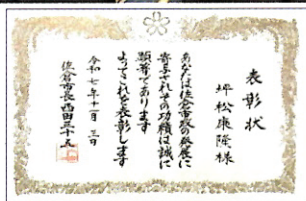 表彰状
坪松康隆様
あなたは佐倉市政の発展に
寄与されその功績は誠に
顕著であります
よってこれを表彰します
令和七年十一月三日
佐倉市長西田三十五